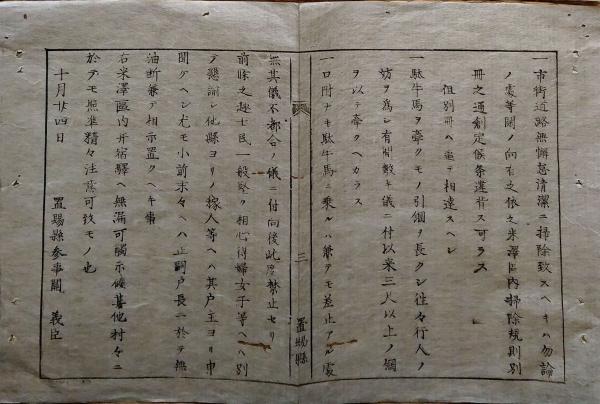 一市街道路無懈怠清潔ニ掃除致スヘキハ勿論
ノ處等閑ノ向有之依之米澤區内掃除規則別
冊之通創定候条違背ス可ラス
但別冊ハ追テ相達スヘシ
一駄牛馬ヲ牽クモノ引綱ヲ長クシ往々行人ノ
妨ヲ為シ有間敷キ儀ニ付以来三尺以上ノ綱
ヲ以テ牽クヘカラス
一口附ナキ駄牛馬ニ乗ルハ兼テモ差止アル處
三
置賜縣
無其儀不都合ノ儀ニ付向後此度禁止セリ
前條之趣士民一般堅ク相心得婦女子等ヘハ別
テ懇諭シ他縣ヨリノ稼人等ヘハ其戸主ヨリ申
聞ケヘシ尤モ小前末々ヘハ正副戸長ニ於テ無
油断兼テ相示置クヘキ事
右米澤區内并宿驛ヘ無漏可觸示候其他村々ニ
於テモ照準精々注意可致モノ也
十月廿四日
置賜縣参事關 義臣